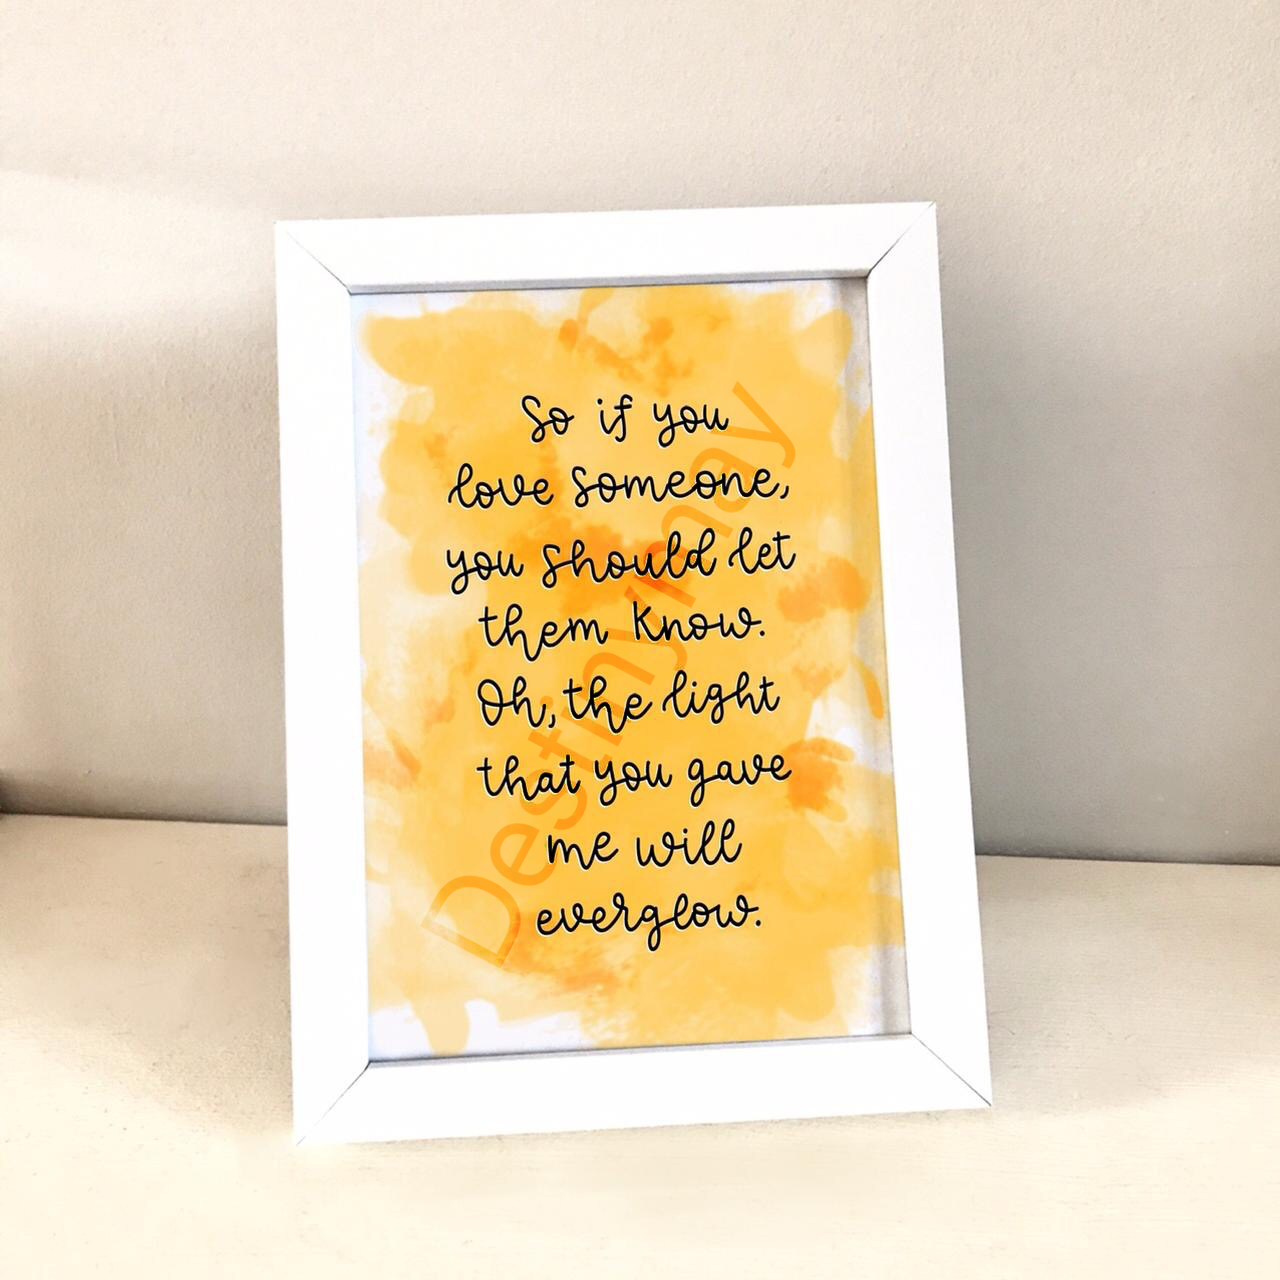 So if you
love someone,
you should let
them know.
Oh, the light
that you gave
me will
everglow.
Destinymay